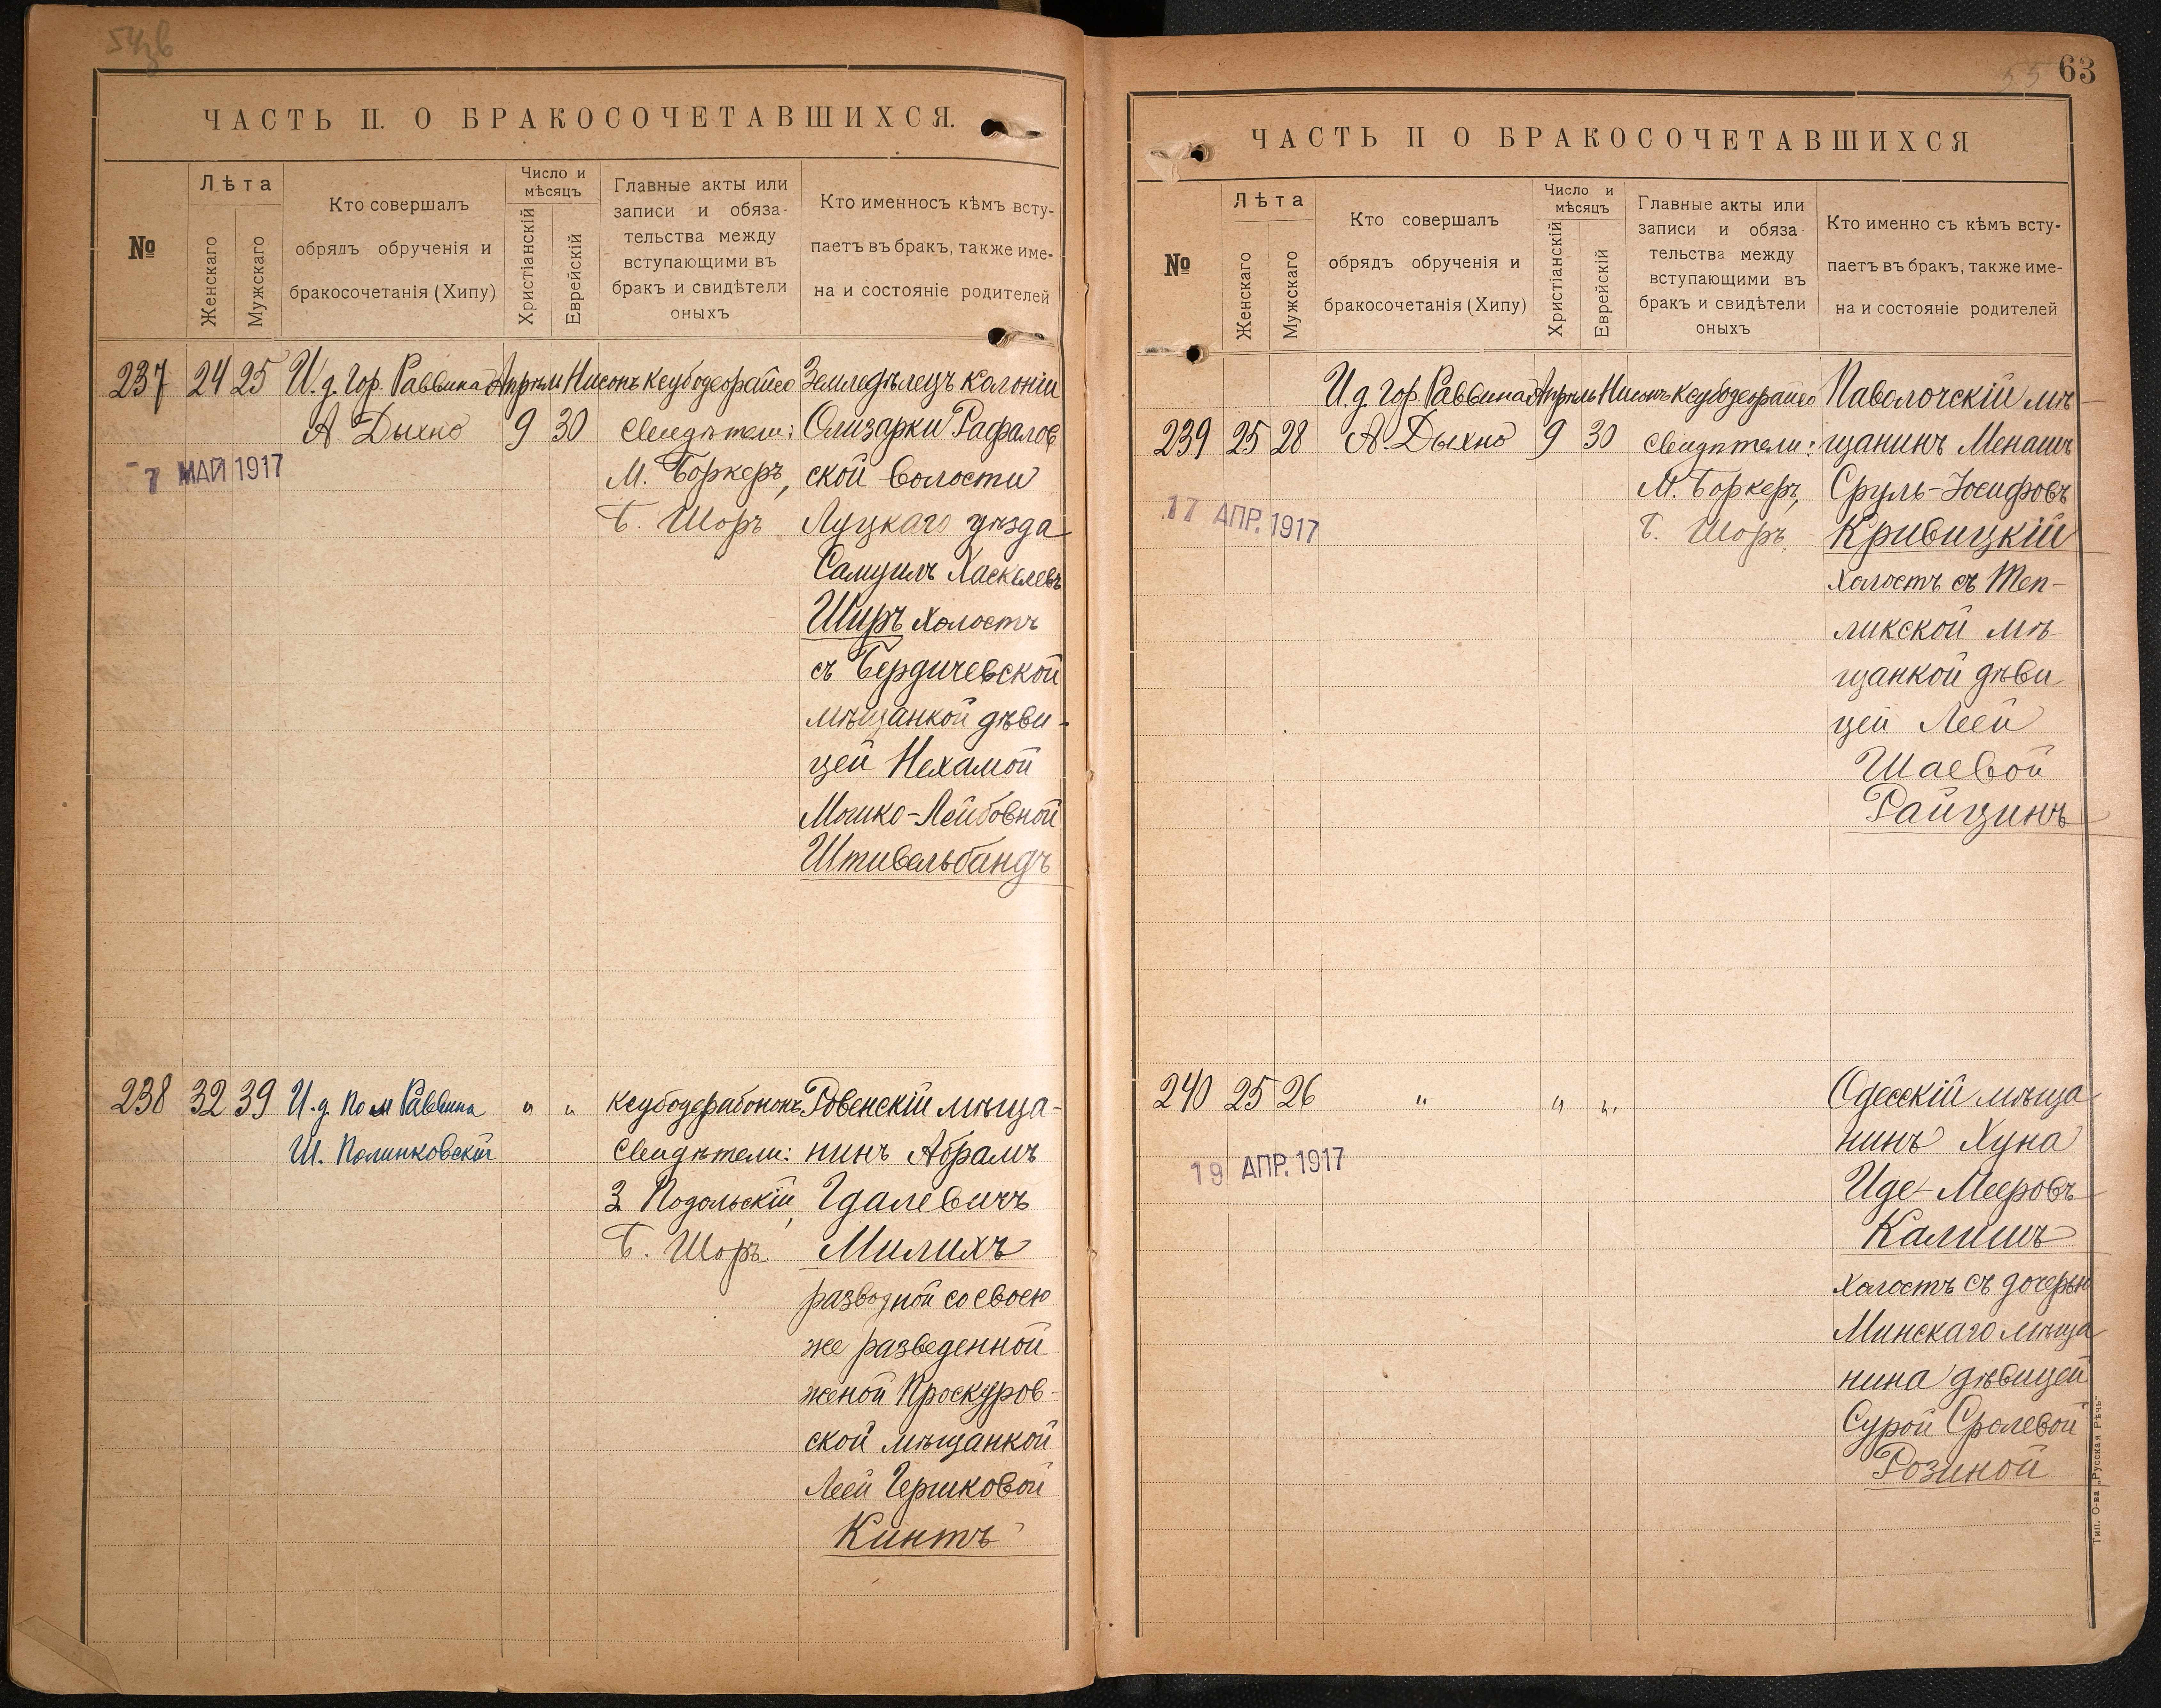 ЧАСТЬ II. О БРАКОСОЧЕТАВШИХСЯ.
№
Лѣта
Женскаго
Мужскаго
Кто совершалъ
обрядъ обрученія и
бракосочетанія (Хипу)
Число и
мѣсяцъ
Христіанскій
Еврейскій
Главные акты или
записи и обяза-
тельства между
вступающими въ
бракъ и свидѣтели
оныхъ
Кто именносъ кѣмъ всту-
паетъ въ бракъ, также име-
на и состояніе родителей
237
24
25
И. д. Гор. Раввина
А Дыхно
Апрѣль
9
Нисонъ
30
Ксубодеорайсо
Свидѣтели:
М. Боркеръ,
Б. Шоръ
Земледѣлецъ колоніи
Олизарки Рафалов
ской волости
Луцкаго уѣзда
Самуилъ Хаскелевъ
Ширъ холостъ
съ Бердичевской
мѣщанкой дѣви-
цей Нехамой
Мошко-Лейбовной
Штивельбандъ
7 МАЙ 1917
238
32
39
И. д. Пом Раввина
Ш. Полинковскій
"
"
Ксубодерабононъ
Свидѣтели:
З Подольскій,
Б. Шоръ
Ровенскій мѣща-
нинъ Абрамъ
Гдалевичъ
Милихъ
разводной со своею
же разведенной
женой Проскуров-
ской мѣщанкой
Леей Гершковой
Кинтъ
63
55
ЧАСТЬ II О БРАКОСОЧЕТАВШИХСЯ
№
Лѣта
Женскаго
Мужскаго
Кто совершалъ
обрядъ обрученія и
бракосочетанія (Хипу)
Число и
мѣсяцъ
Христіанскій
Еврейскій
Главные акты или
записи и обяза
тельства между
вступающими въ
бракъ и свидѣтели
оныхъ
Кто именно съ кѣмъ всту-
паетъ въ бракъ, также име-
на и состояніе родителей
239
25
28
И. д. Гор. Раввина
А. Дыхно
Апрѣль
9
Нисонъ
30
Ксубодеорайсо
Свидѣтели:
М. Боркеръ,
Б. Шоръ
Паволочскій мѣ-
щанинъ Менашъ
Сруль-Іосифовъ
Кривицкій
холостъ съ Теп-
ликской мѣ-
щанкой дѣви
цей Леей
Шаевой
Райцинъ
17 АПР. 1917
240
25
26
"
"
"
Одесскій мѣща
нинъ Хуна
Иде-Мееровъ
Калишъ
холостъ съ дочерью
Минскаго мѣща
нина дѣвицей
Сурой Сролевой
Розиной
19 АПР. 1917
Тип. О-ва „Русская Рѣчь"